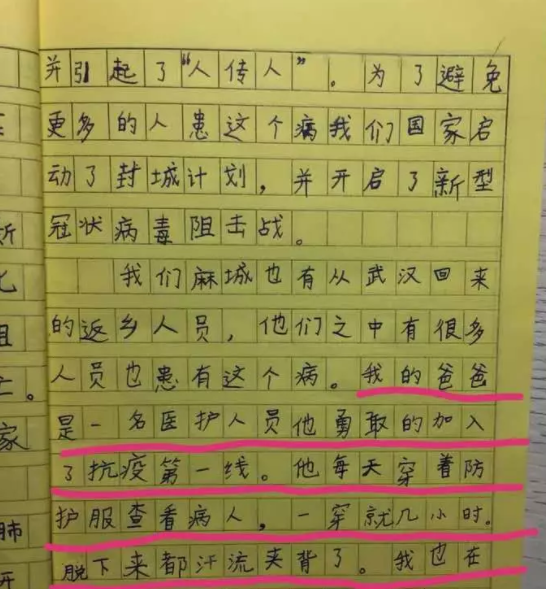 并引起了“人传人”。为了避免
更多的人患这个病我们国家启
动了封城计划，并开启了新型
冠状病毒阻击战。
我们麻城也有从武汉回来
的返乡人员，他们之中有很多
人员也患有这个病。我的爸爸
是一名医护人员他勇敢的加入
了抗疫第一线。他每天穿着防
护服查看病人，一穿就几小时。
脱下来都汗流夹背了。我也在